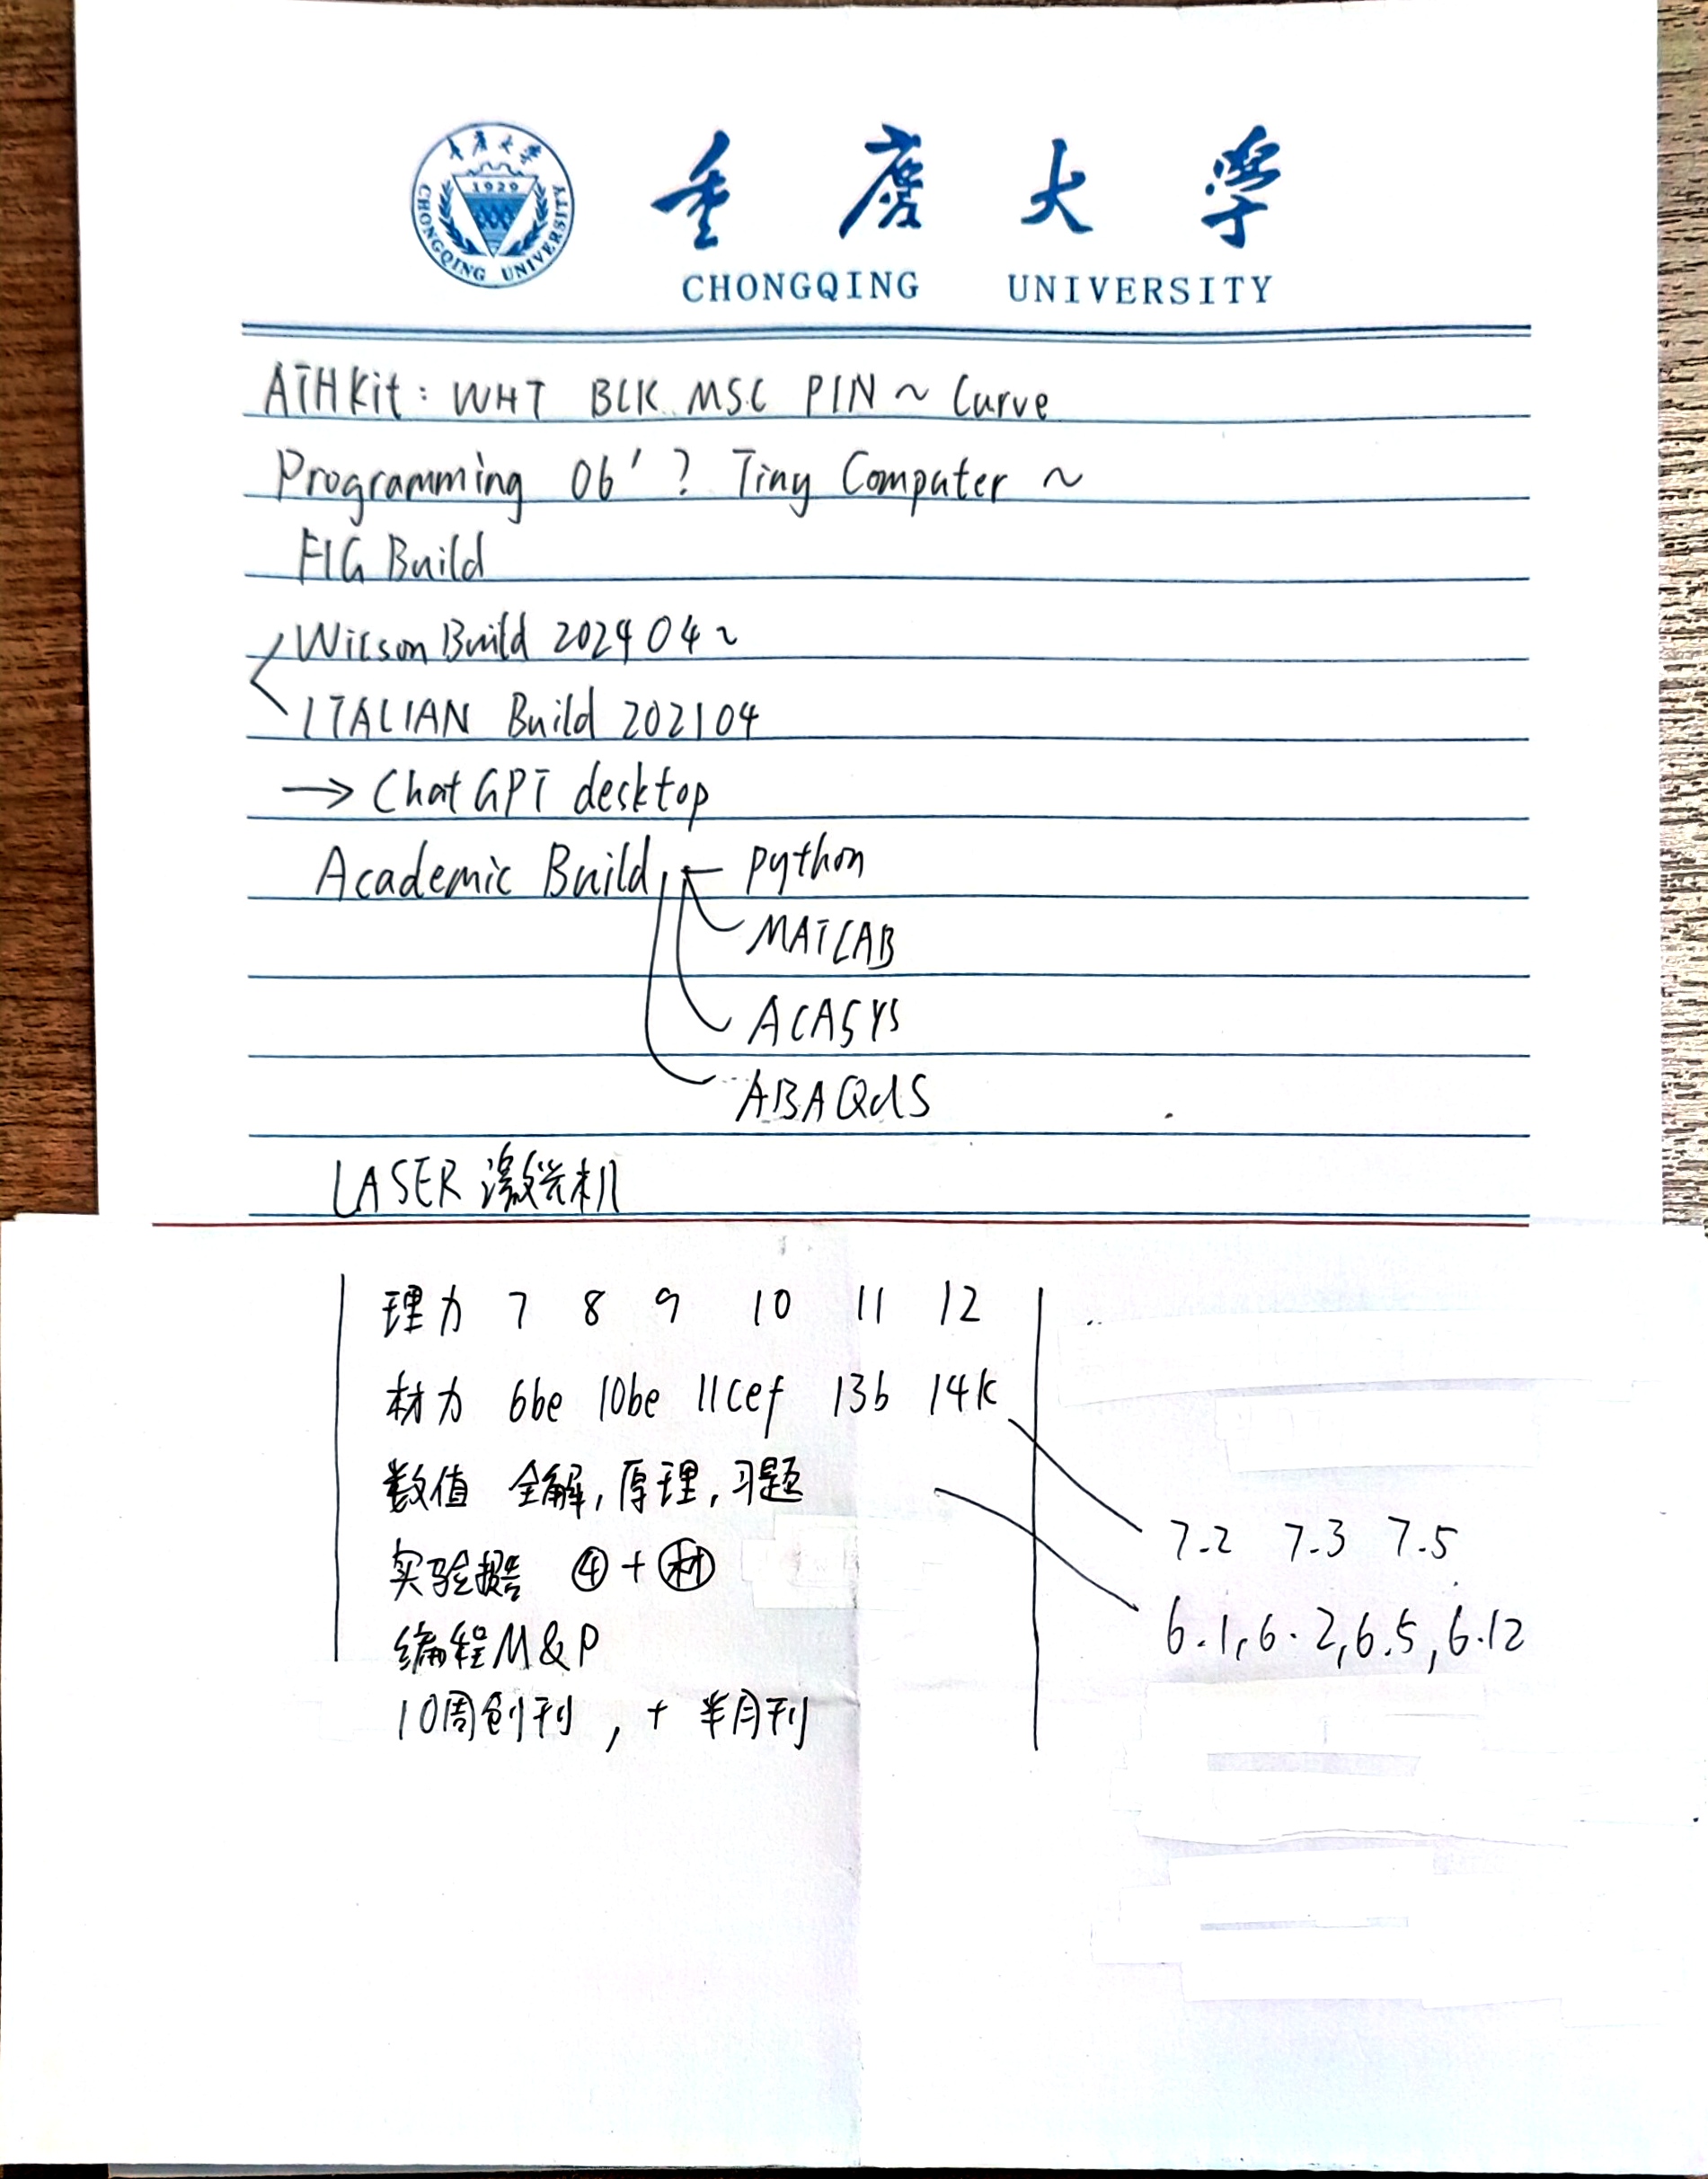 重庆大学
1929
CHONGQING UNIVERSITY
重庆大学
CHONGQING UNIVERSITY
ATHKit: WHT BLK MSC PIN ~ Curve
Programming 06' ? Tiny Computer ~
FIG Build
Wilson Build 202404 ~
ITALIAN Build 202104
→ ChatGPT desktop
Academic Build python
MATLAB
ACASYS
ABAQUS
LASER 激光机
理力 7 8 9 10 11 12
材力 6be 10be 11cef 13b 14k
7.2 7.3 7.5
数值 全解, 原理, 习题
6.1, 6.2, 6.5, 6.12
实验报告 ④ + 材
编程M&P
10周创刊, + 半月刊